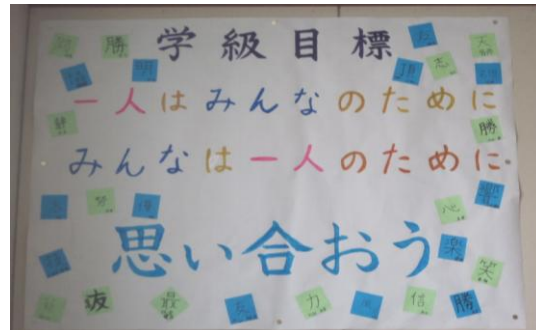 学級目標
一人はみんなのために
みんなは一人のために
思い合おう
勝
明
志
勝
響
心
楽
笑
力
信
勝